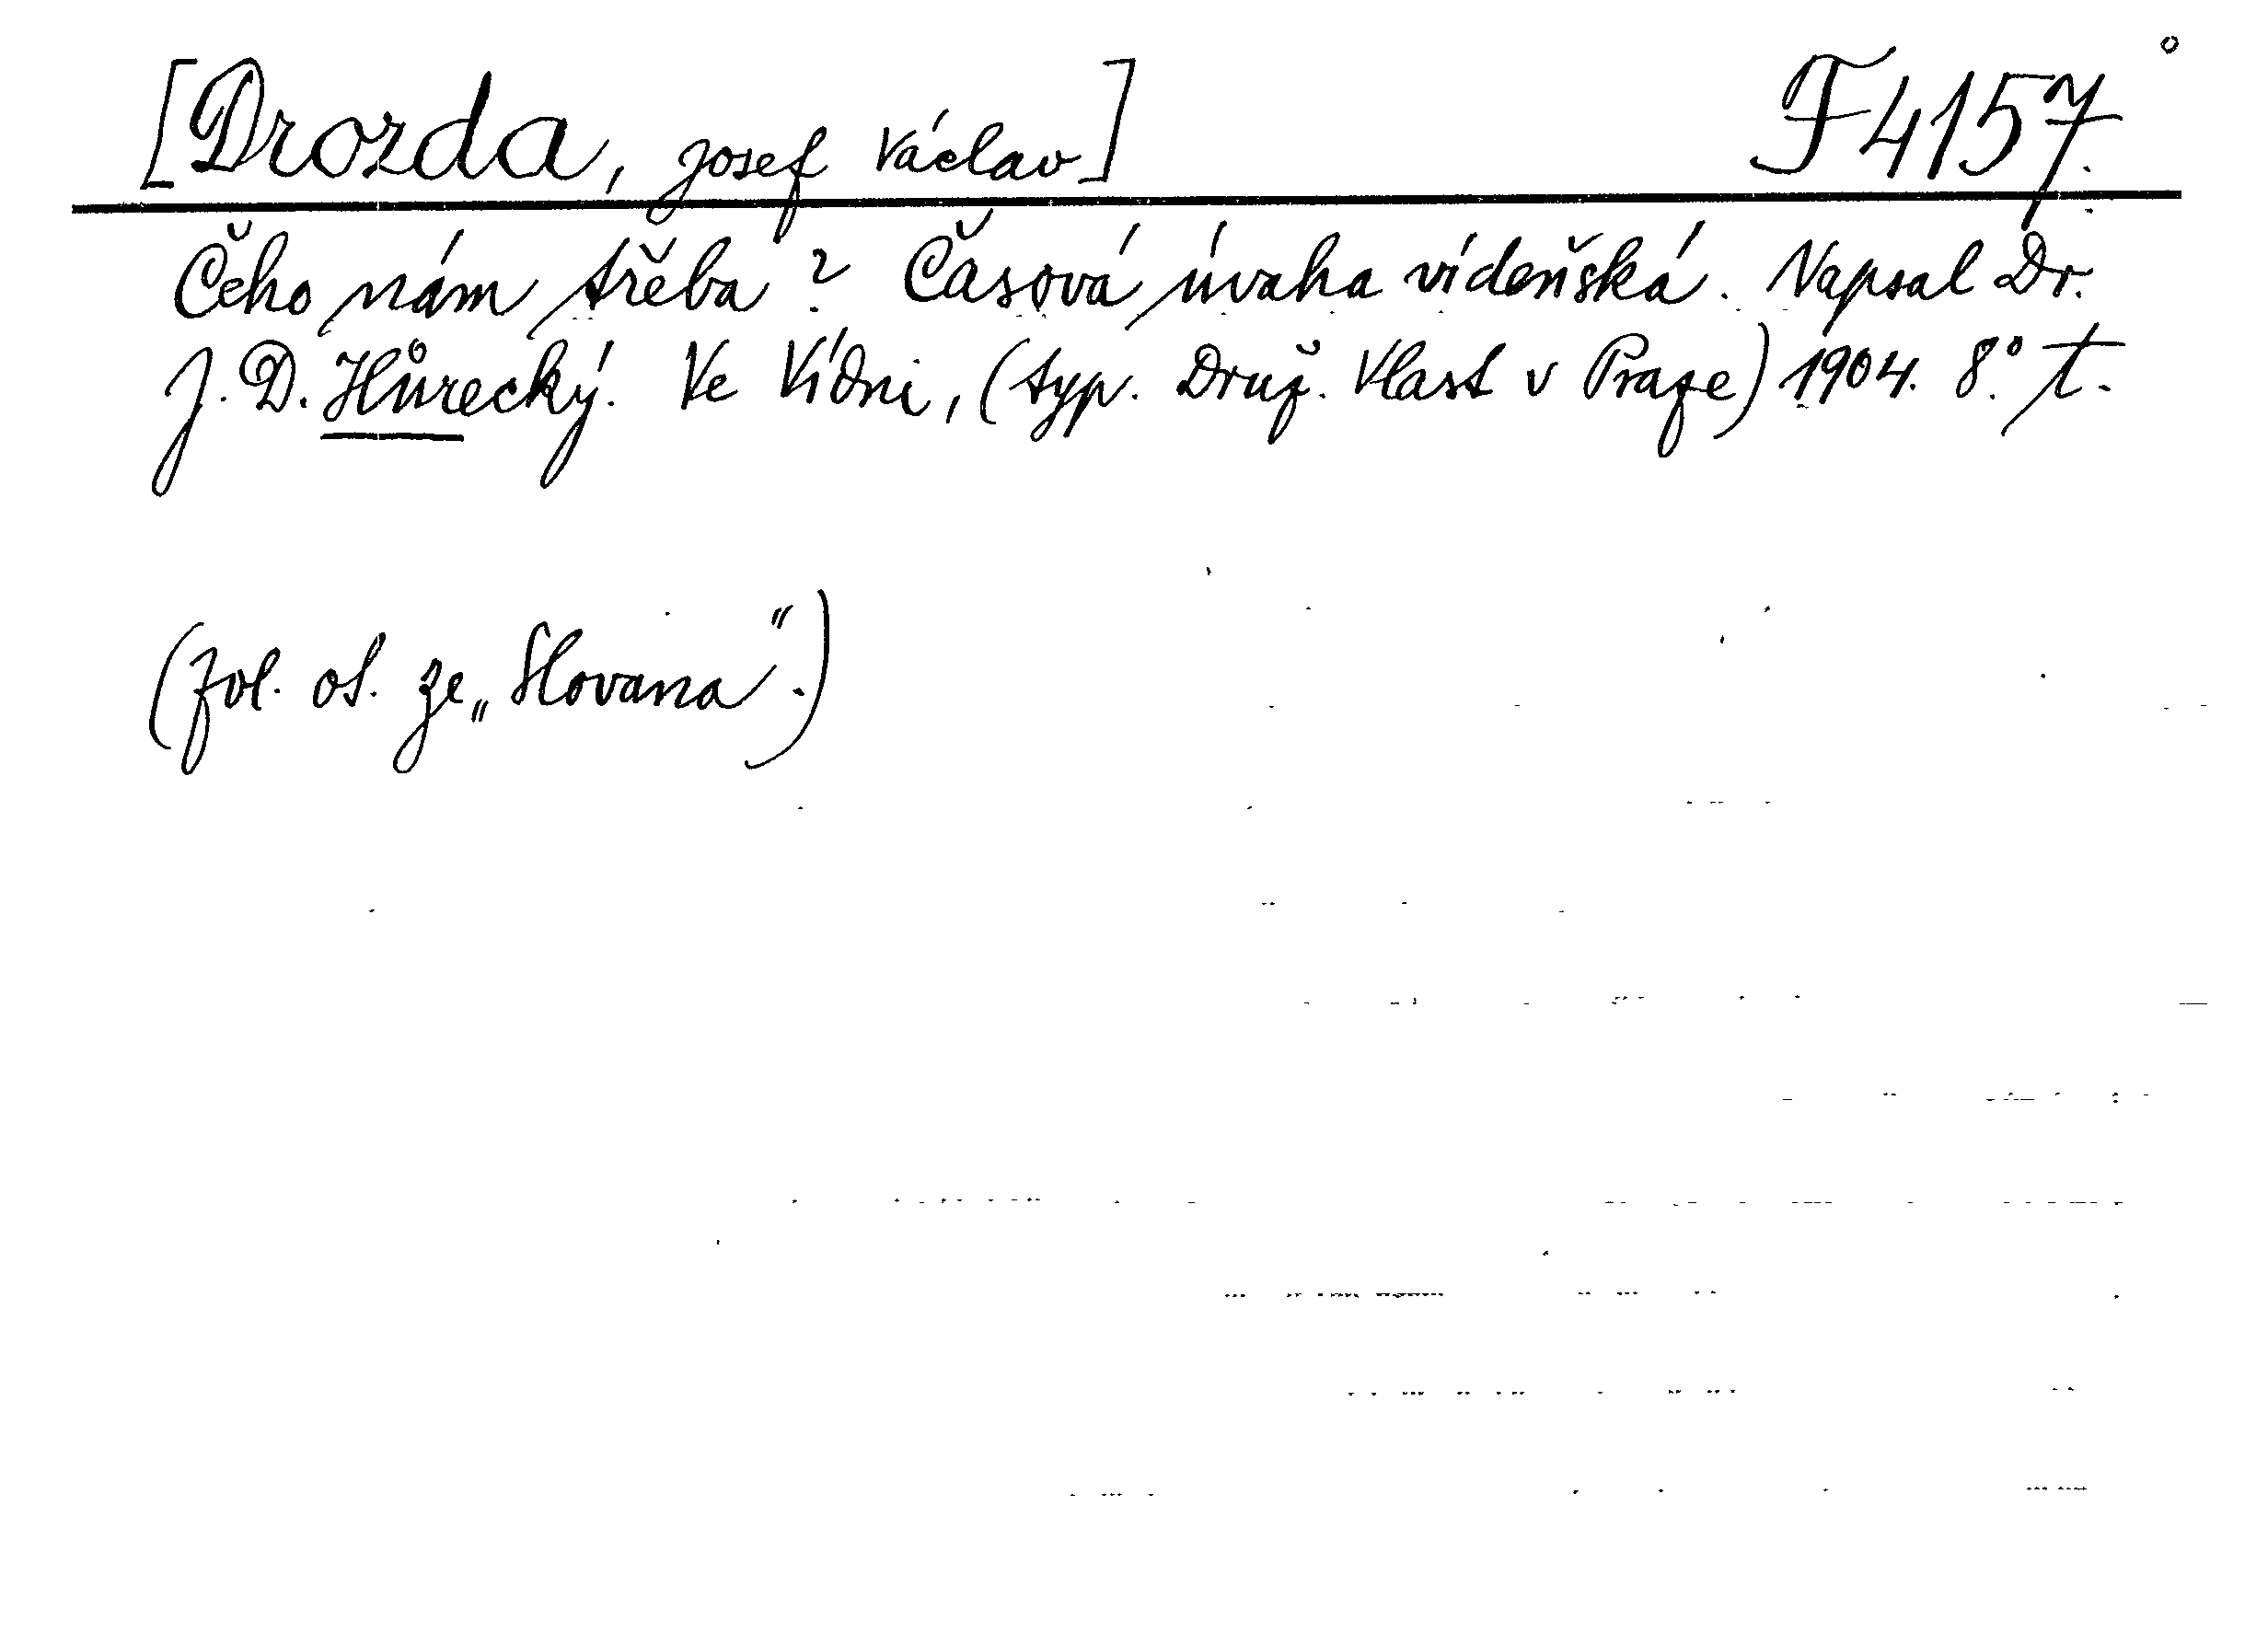 [Drozda, Josef Václav] F 4157.
Čeho nám třeba? Časová úvaha vídeňská. Napsal Dr.
J. D. Hůrecký. Ve Vídni, (typ. Druž. Vlast v Praze) 1904. 8.° t.
(zvl. ot. ze „Slovana“.)